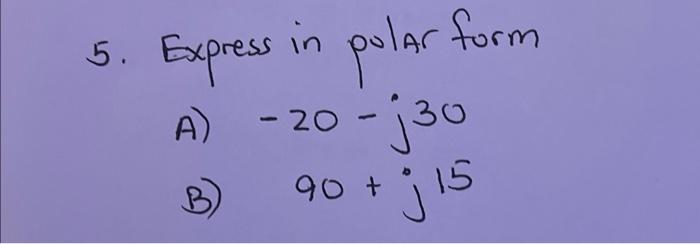 5. Express in polar form
A) -20 - j30
B) 90 + j15